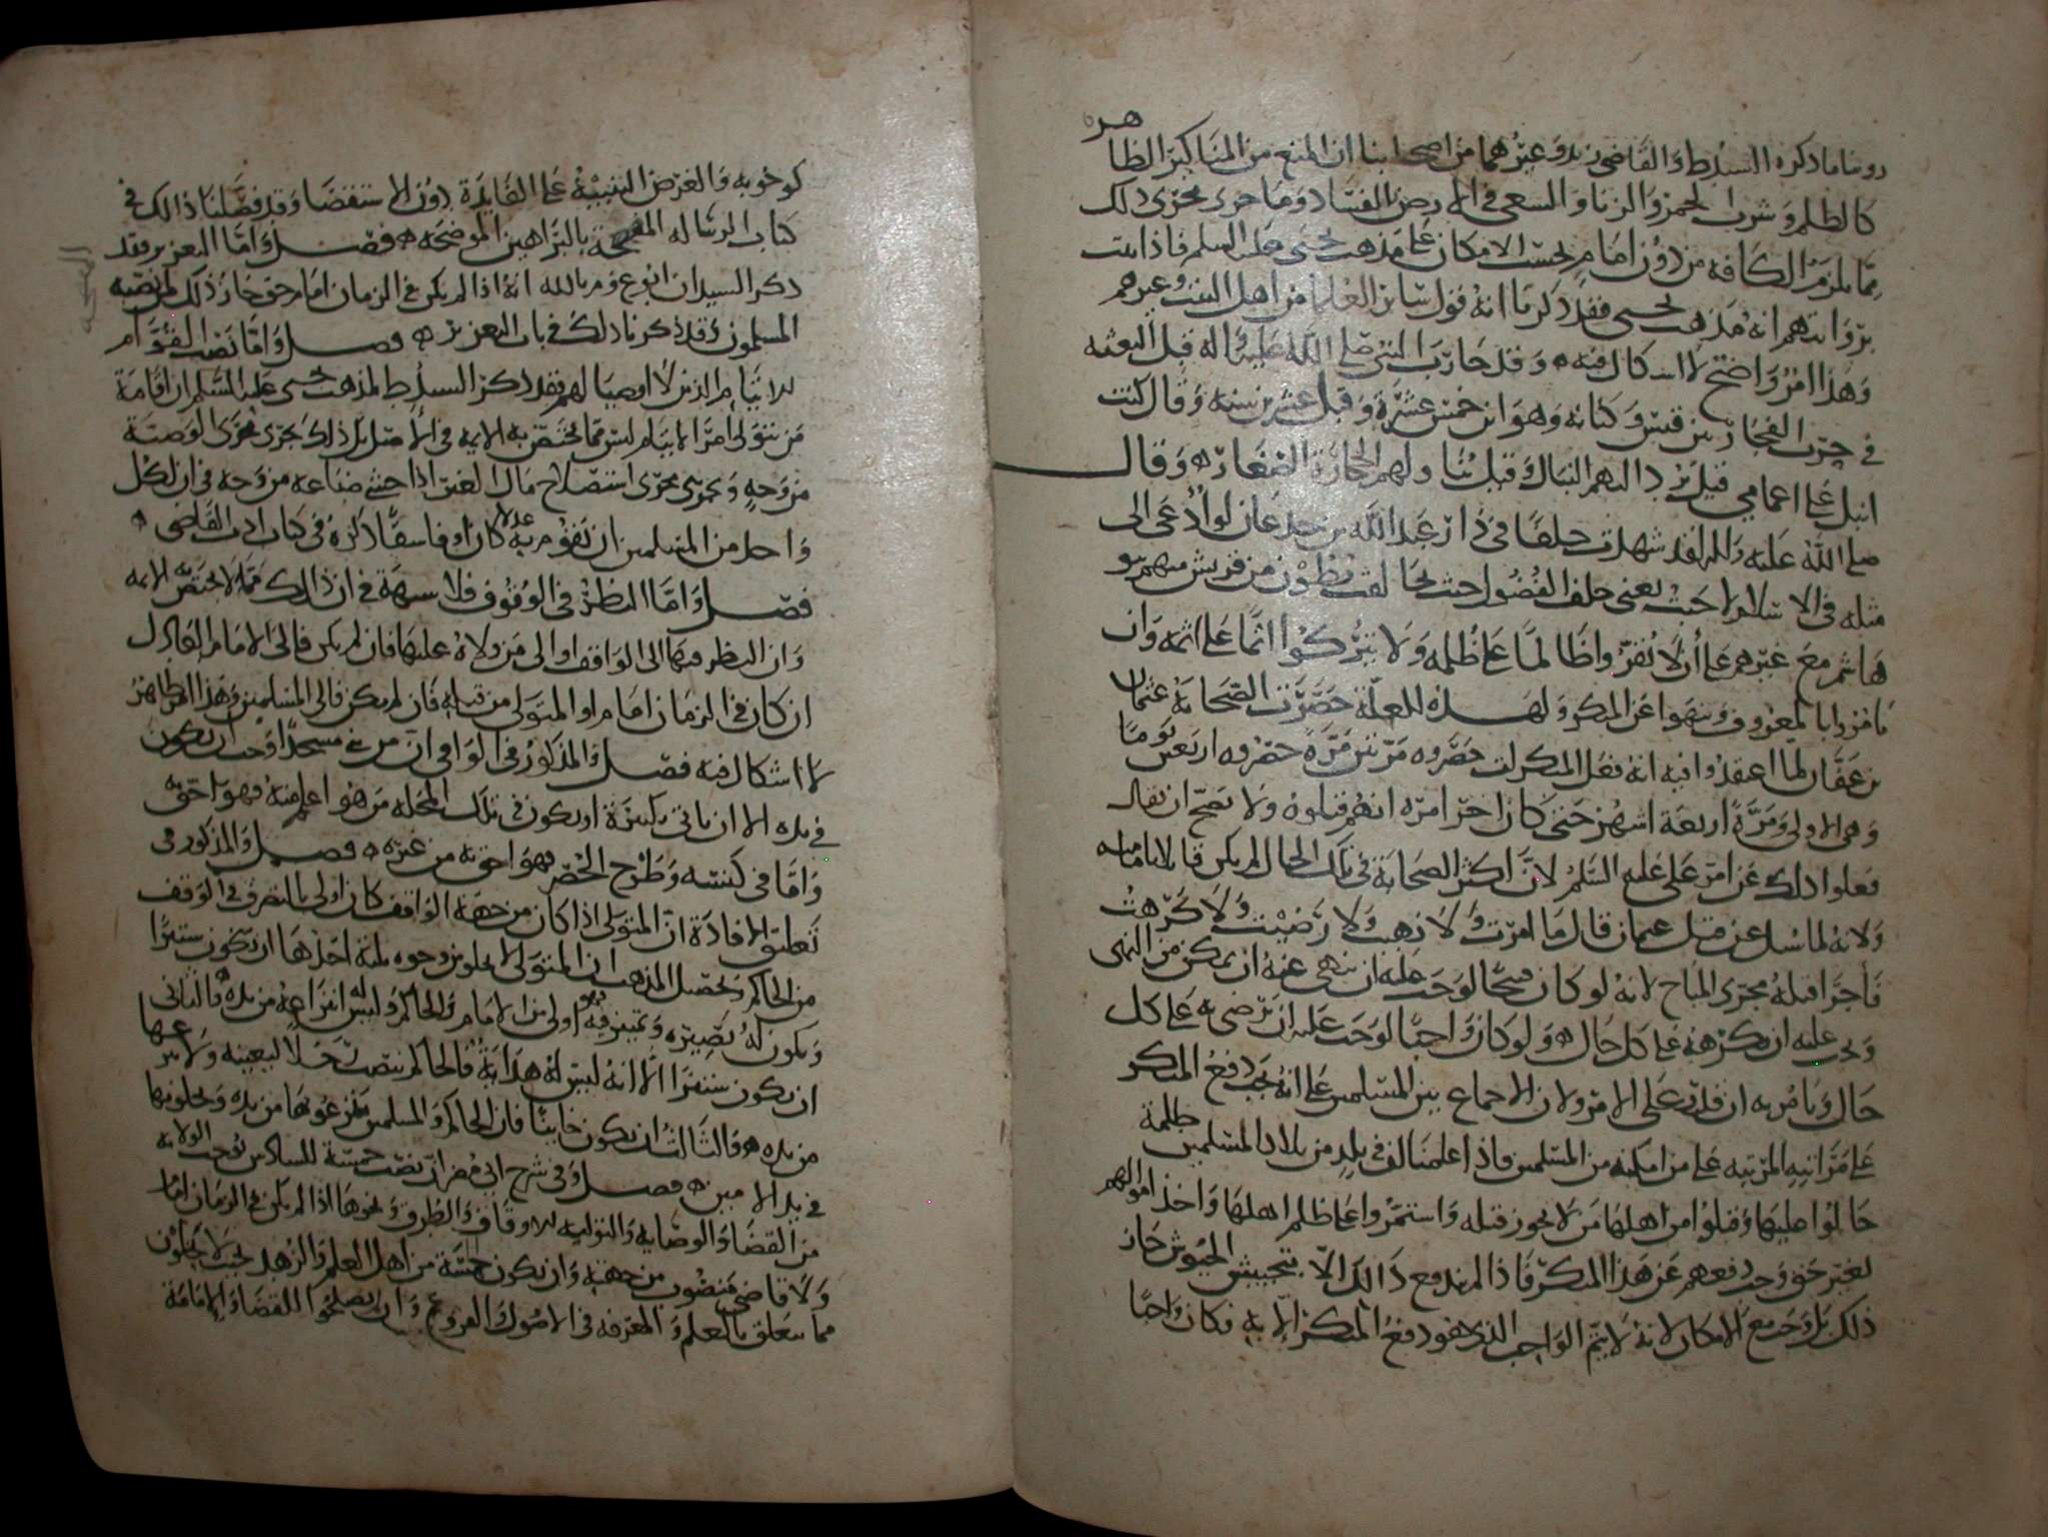 روينا ما ذكره السيد ط والقاضي زيد وغيرهما من اصحابنا ان المنع من المناكير الظاهره
كالظلم وشرب الخمر والزنا والسعي في الارض الفساد وما جرى مجرى ذلك
مما يلزم الكافة من دون امام بحسب الامكان على مذهب يحيى عليه السلم فاذا ثبت
بروايتهم انه مذهب يحيى فقد ذكرنا انه قول سائر العلما من اهل البيت وغيرهم
وهذا امر واضح لا اشكال فيه وقد حارب النبي صلى الله عليه واله قبل البعثه
في حرب الفجار بين قيس وكنانه وهو ابن خمس عشرة وقيل عشرين سنه وقال كنت
انبل على اعمامي قيل يرد اليهم النبال وقيل يناولهم الحجارة الصغار وقال
صلى الله عليه واله لقد شهدت حلفا في دار عبد الله بن جدعان لو ادعى الى
مثله في الاسلام لاجبت يعني حلف الفضول حيث تحالفت بطون من قريش منهم بنو
هاشم مع غيرهم على أن لا يقروا ظالما على ظلمه ولا يتركوا اثما على اثمه وان
يامروا بالمعروف وينهوا عن المنكر ولهذه العلة حصرت الصحابة عثمان
بن عفان لما اعتقدوا فيه انه فعل المنكرات حصروه مرتين مرة حصروه اربعين يوما
وهي الاولى ومرة اربعة اشهر حتى كان اخر امره انهم قتلوه ولا يصح ان يقال
فعلوا ذلك عن امر علي عليه السلم لان اكثر الصحابة في تلك الحال لم يكن قايلا بامامته
ولانه لما سئل عن قتل عثمان قال ما امرت ولا نهيت ولا رضيت ولا كرهت
فأجرا قتله مجرى المباح لانه لو كان قبيحا لوجب عليه ان ينهى عنه ان يمكن من النهي
ويجب عليه ان يكرهه على كل حال ولو كان واجبا لوجب عليه ان يرضى به على كل
حال ويامر به ان قدر على الامر ولان الاجماع بين المسلمين على انه يجب دفع المنكر
على مراتبه المرتبه على من امكنه من المسلمين فاذا علمنا ان في بلد من بلاد المسلمين ظلمة
حالوا عليها وقتلوا من اهلها من لا يجوز قتله واستمروا على ظلم اهلها واخذ اموالهم
لغير حق وجب دفعهم عن هذا المنكر فاذا لم يندفع ذلك الا بتجييش الجيوش جاز
ذلك بل وجب مع الامكان لانه لا يتم الواجب الذي هو دفع المنكر الا به فكان واجبا
كوجوبه والغرض التنبيه على الفايدة دون الاستقصا وقد فصلنا ذلك في
كتاب الرساله المفصحة بالبراهين الموضحه فصل واما التعزير فقد
ذكر السيدان ابوع وم بالله انه اذا لم يكن في الزمان امام حق جاز ذلك لمن نصبه
المسلمون وقد ذكرنا ذلك في باب التعزير فصل واما نصب القوام
للايتام الذين لا اوصيا لهم فقد ذكر السيد ط لمذهب يحيى عليه السلم ان اقامة
من يتولى امر الايتام ليس مما يختص به الايمه في الاصل بل ذلك يجري مجرى الوصية
من وجه ويجري مجرى استصلاح مال الغير اذا خشي ضياعه من وجه في ان لكل
واحد من المسلمين ان يقوم به عدلا كان او فاسقا ذكره في كتاب ادب القاضي
فصل واما النظر في الوقوف فلا شبهة في ان ذلك مما لا يختص به الايمه
وان النظر فيها الى الواقف او الى من ولاه عليها فان لم يكن فالى الامام العادل
ان كان في الزمان امام او المتولي من قبله فان لم يكن فالى المسلمين وهذا ظاهر
لا اشكال فيه فصل والمذكور في الوافي ان من بنى مسجدا وجب ان يكون
في يده الا ان ياتي بكبيرة او يكون في تلك المحله من هو اعلم منه فهو احق به
واما في كنسه وطرح الحصر فهو احق به من غيره فصل والمذكور في
تعليق الافادة ان المتولي اذا كان من جهة الواقف كان اولى بالتصرف في الوقف
من الحاكم وتحصيل المذهب ان المتولي لا يخلو من وجوه ثلثة احدها ان يكون ستيرا
ويكون له بصيره وتمييز فهو اولى من الامام والحاكم وليس له انتزاعه من يده والثاني
ان يكون ستيرا الا انه ليس له هداية فالحاكم ينصب رجلا ليعينه ولا ينزعها
من يده والثالث ان يكون خاينا فان الحاكم والمسلمين ينزعونها من يده ويجعلونها
في يد الامين فصل وفي شرح ابي مضر ان نصب خمسة للساكين توجب الولاية
من القضا والوصاية والتولية للاوقاف والطرق ونحوها اذا لم يكن في الزمان امام
ولا قاضي منصوب من جهته وان يكون خمسة من اهل العلم والزهد بحيث لا يجهلون
مما يتعلق بالعلم والمعرفه في الاصول والفروع وان يصلحوا للقضا والامامة